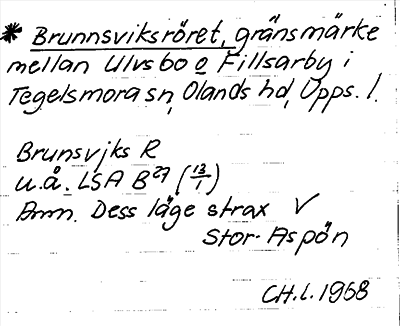 * Brunnsviksröret, gränsmärke
mellan Ulvsbo o Fillsarby i
Tegelsmora sn, Olands hd, Upps. l.
Brunsvjks R
u.å. LSA B27 (13/1)
Anm. Dess läge strax V
Stor-Aspön
CH.L. 1968